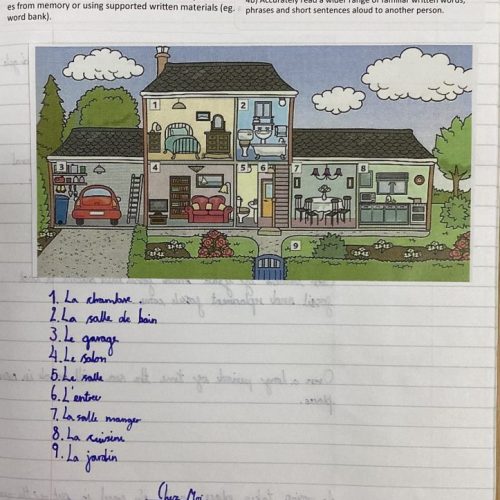 es from memory or using supported written materials (eg.
word bank).
4b) Accurately read a wider range of familiar written words,
phrases and short sentences aloud to another person.
1
2
3
4
5
6
7
8
9
1. La chambre.
2. La salle de bain
3. Le garage
4. Le salon
5. Le salle
6. L'entree
7. La salle manger
8. La cuisine
9. La jardin
Chez Moi